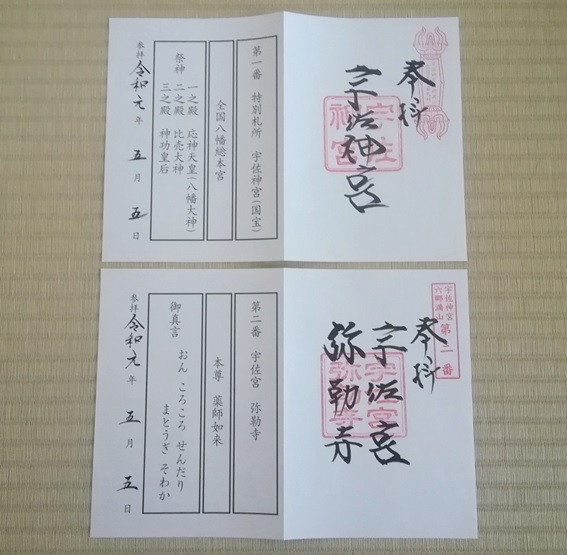 奉拝
宇佐神宮
宇佐
神宮
第一番 特別札所 宇佐神宮(国宝)
全国八幡総本宮
祭神 一之殿 応神天皇(八幡大神)
二之殿 比売大神
三之殿 神功皇后
参拝 令和元年 五月 五日
宇佐神宮
六郷満山
第二番
奉拝
宇佐宮
弥勒寺
宇佐宮
弥勒寺
第二番 宇佐宮 弥勒寺
本尊 薬師如来
御真言 おん ころころ せんだり
まとうぎ そわか
参拝 令和元年 五月 五日